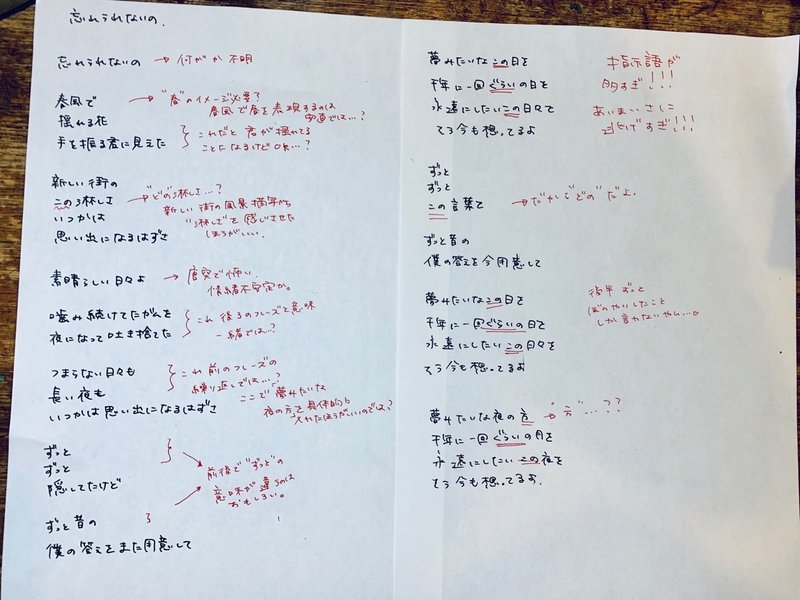 忘れられないの。
忘れられないの → 何がか不明
春風で → "春"のイメージ必要?
春風で春を表現するのは
安直では…?
揺れる花
手を振る君に見えた
これだと君が揺れてる
ことになるけどOK…?
新しい街の
この淋しさ → "どの"淋しさ…?
いつかは
思い出になるはずさ
新しい街の風景描写から
"淋しさ"を感じさせた
ほうがいい。
素晴らしい日々よ → 唐突で怖い。
情緒不安定か。
噛み続けてたガムを
夜になって吐き捨てた
これ後ろのフレーズと意味
一緒では…?
つまらない日々も
長い夜も
いつかは思い出になるはずさ
これ前のフレーズの
繰り返しでは…?
ここで「夢みたいな
夜の方」を具体的に
入れたほうがいいのでは?
ずっと
ずっと
隠してたけど
前後で"ずっと"の
意味が違うのは
おもしろい。
ずっと昔の
僕の答えをまた用意して
夢みたいなこの日を
千年に一回ぐらいの日を
永遠にしたいこの日々を
そう今も想ってるよ
指示語が
多すぎ!!!
あいまいさに
逃げすぎ!!!
ずっと
ずっと
この言葉で → だから"どの"だよ。
ずっと昔の
僕の答えを今用意して
夢みたいなこの日を
千年に一回ぐらいの日を
永遠にしたいこの日々を
そう今も想ってるよ
後半ずっと
ぼんやりしたこと
しか言わないやん…。
夢みたいな夜の方 → "方"…??
千年に一回ぐらいの月を
永遠にしたいこの夜を
そう今も想ってるよ。